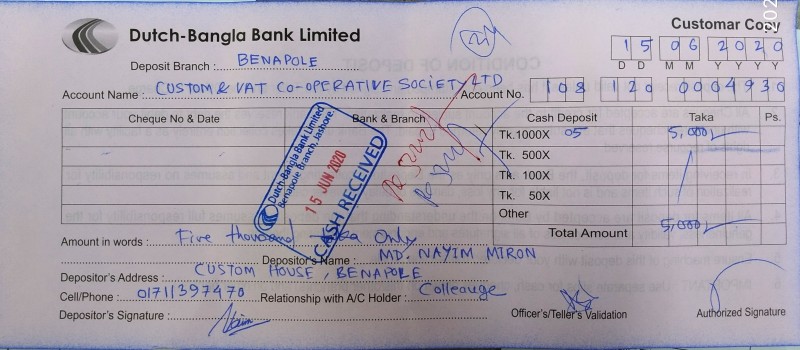 Customar Copy
Dutch-Bangla Bank Limited
15 06 2020
D D M M Y Y Y Y
Deposit Branch : BENAPOLE
Account Name : CUSTOM & VAT CO-OPERATIVE SOCIETY LTD Account No. 108 120 0004930
Cheque No & Date Bank & Branch Cash Deposit Taka Ps.
Tk. 1000X 05 5,000/-
Tk. 500X
Tk. 100X
Tk. 50X
Other
Total Amount 5,000/-
Dutch-Bangla Bank Limited
Benapole Branch, Jashore.
15 JUN 2020
CASH RECEIVED
Amount in words : Five thousand Taka Only
Depositor's Name : MD. NAYIM MIRON
Depositor's Address : CUSTOM HOUSE, BENAPOLE
Cell/Phone : 01711397470 Relationship with A/C Holder : Colleauge
Depositor's Signature : Officer's/Teller's Validation Authorized Signature